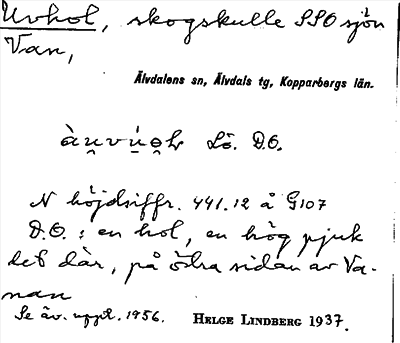 Uvhol, skogskulle SSO sjön
Van,
Älvdalens sn, Älvdals tg, Kopparbergs län.
Lö. D.O.
N höjdsiffr. 441.12 å G107
D.O.: en hol, en hög pjuk
det där, på östra sidan av Va-
nan
Se äv. uppt. 1956. HELGE LINDBERG 1937.